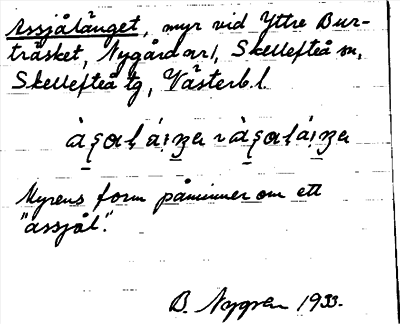 Assjålänget, myr vid Yttre Bur-
träsket, Nygård ar/, Skellefteå sn,
Skellefteå tg, Västerb. l.
Myrens form påminner om ett
"assjål".
B. Nygren 1933.